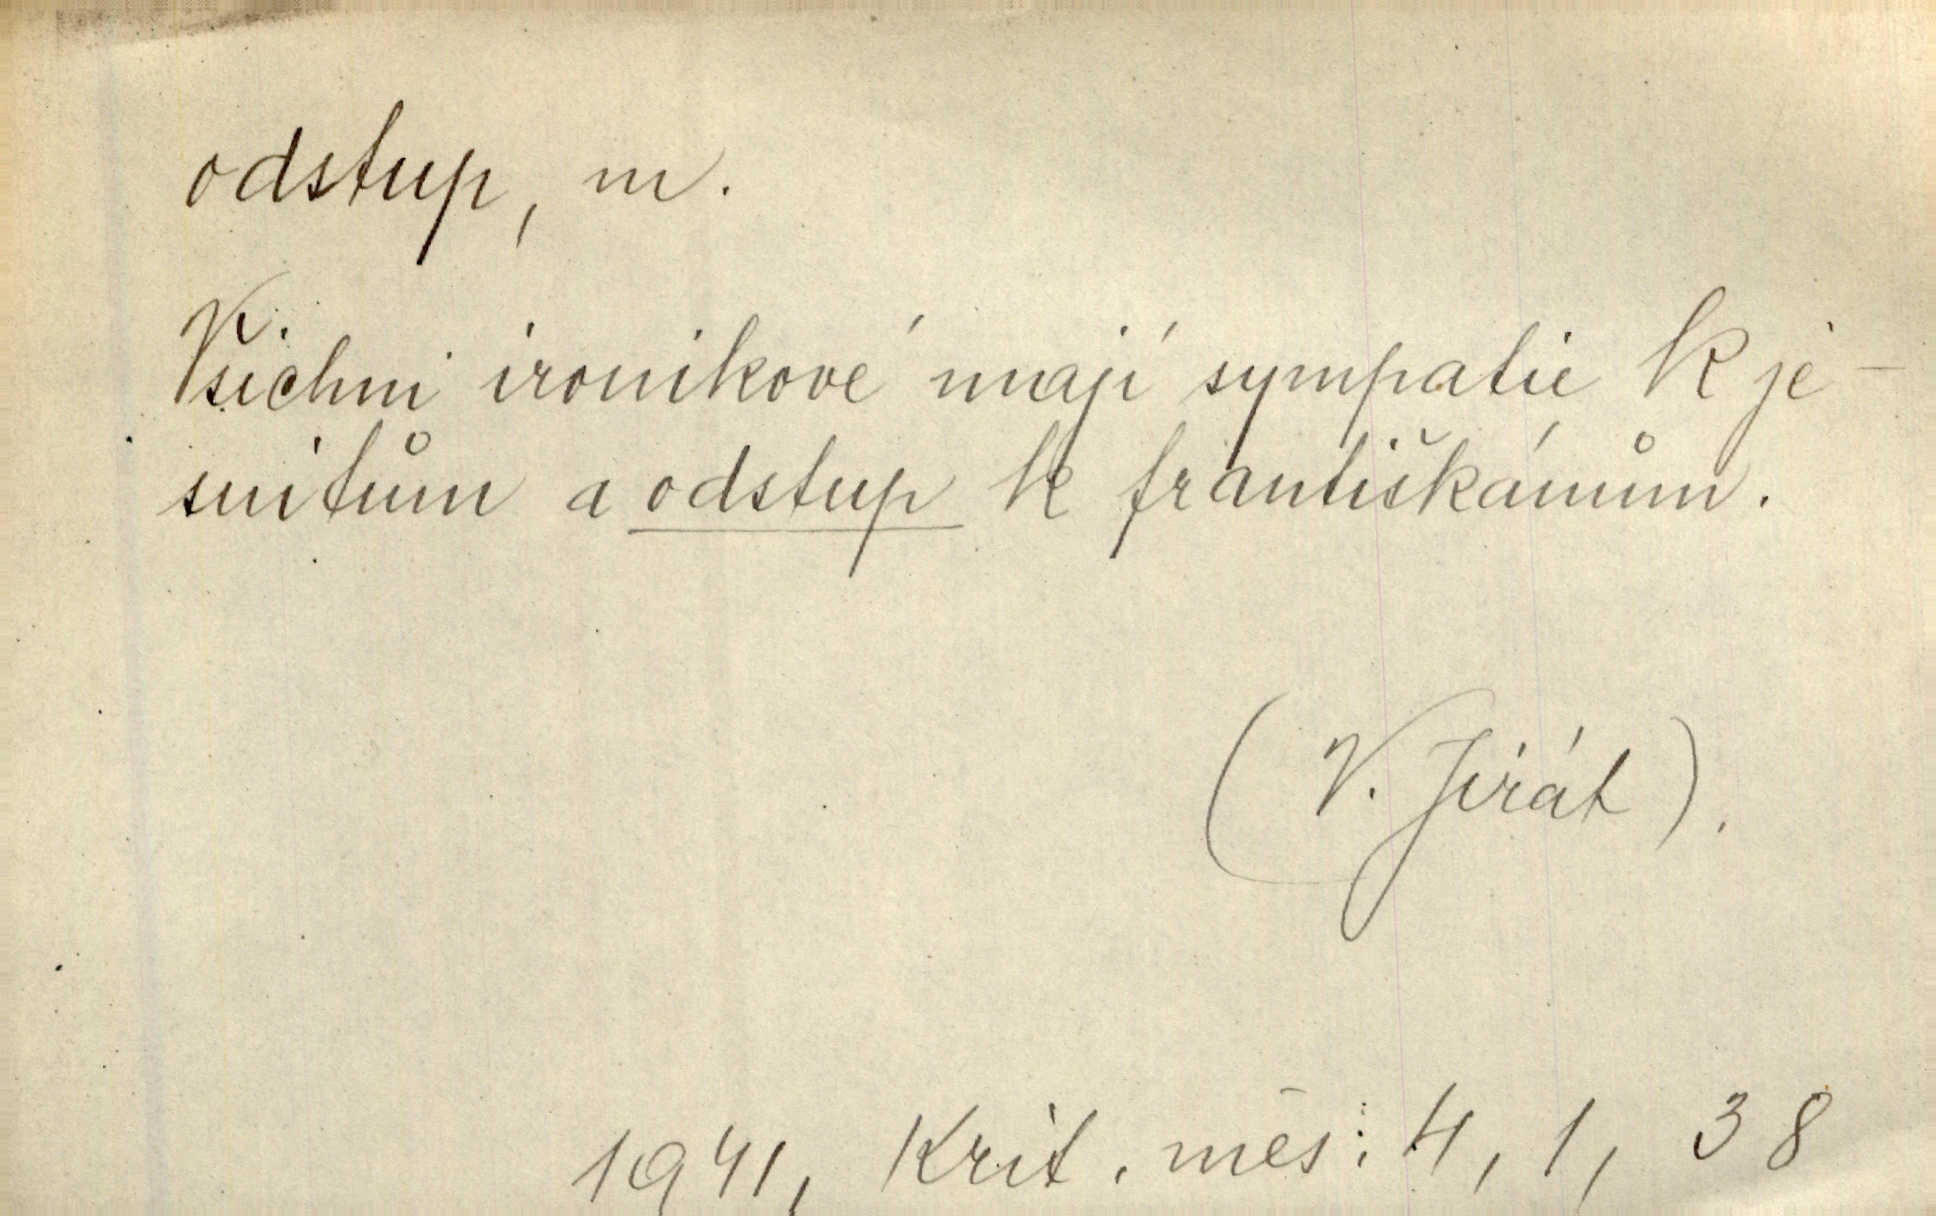 odstup, m.
Všichni ironikové mají sympatie k je-
suitům a odstup k františkánům.
(V. Jirát).
1941, Krit. měs. 4, 1, 38